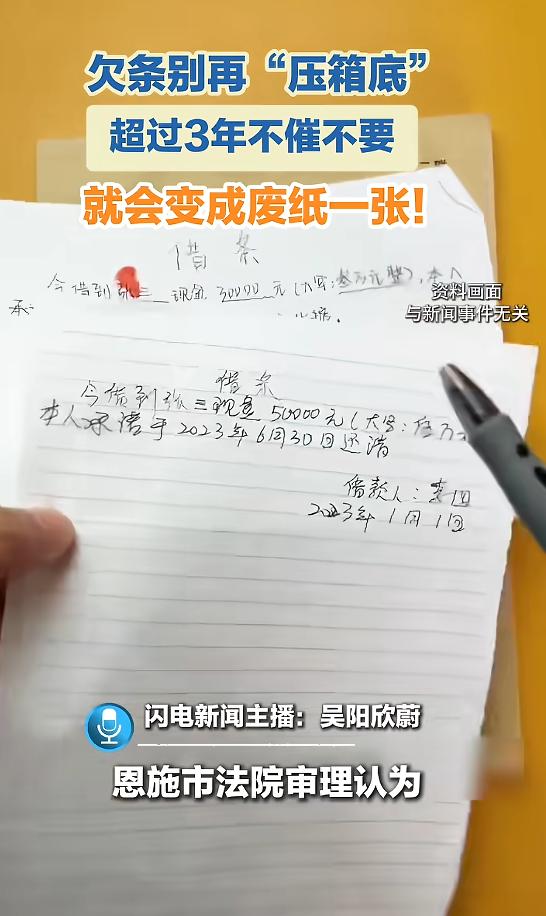 欠条别再“压箱底”
超过3年不催不要
就会变成废纸一张!
借条
今借到张三 现金 30000 元(大写:叁万元整),本人
承
资料画面
与新闻事件无关
借条
今借到张三现金 50000元(大写:伍万
本人承诺于2023年6月30日还清
借款人:李四
2023年1月1日
闪电新闻主播:吴阳欣蔚
恩施市法院审理认为